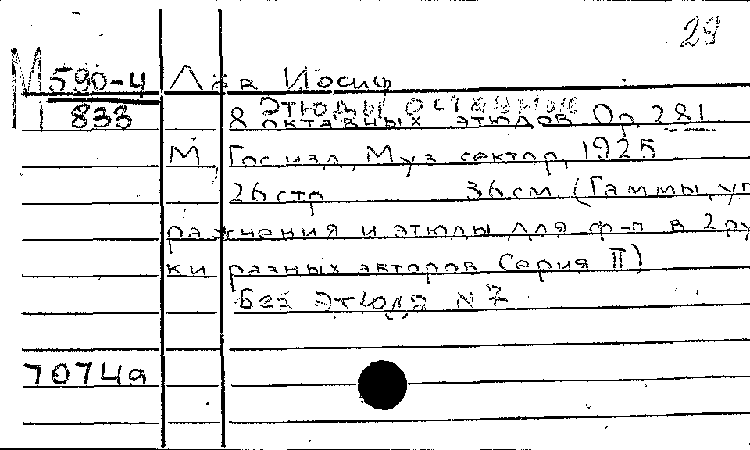 29
М 590-4 Лёв Иосиф
833 Этюды октавные
8 октавных этюдов Op. 281
М, Гос. изд, Муз сектор, 1925
26 стр 36 см (Гаммы, уп
ражнения и этюды для ф-п в 2 ру
ки разных авторов Серия II)
Без этюда N 7
70749